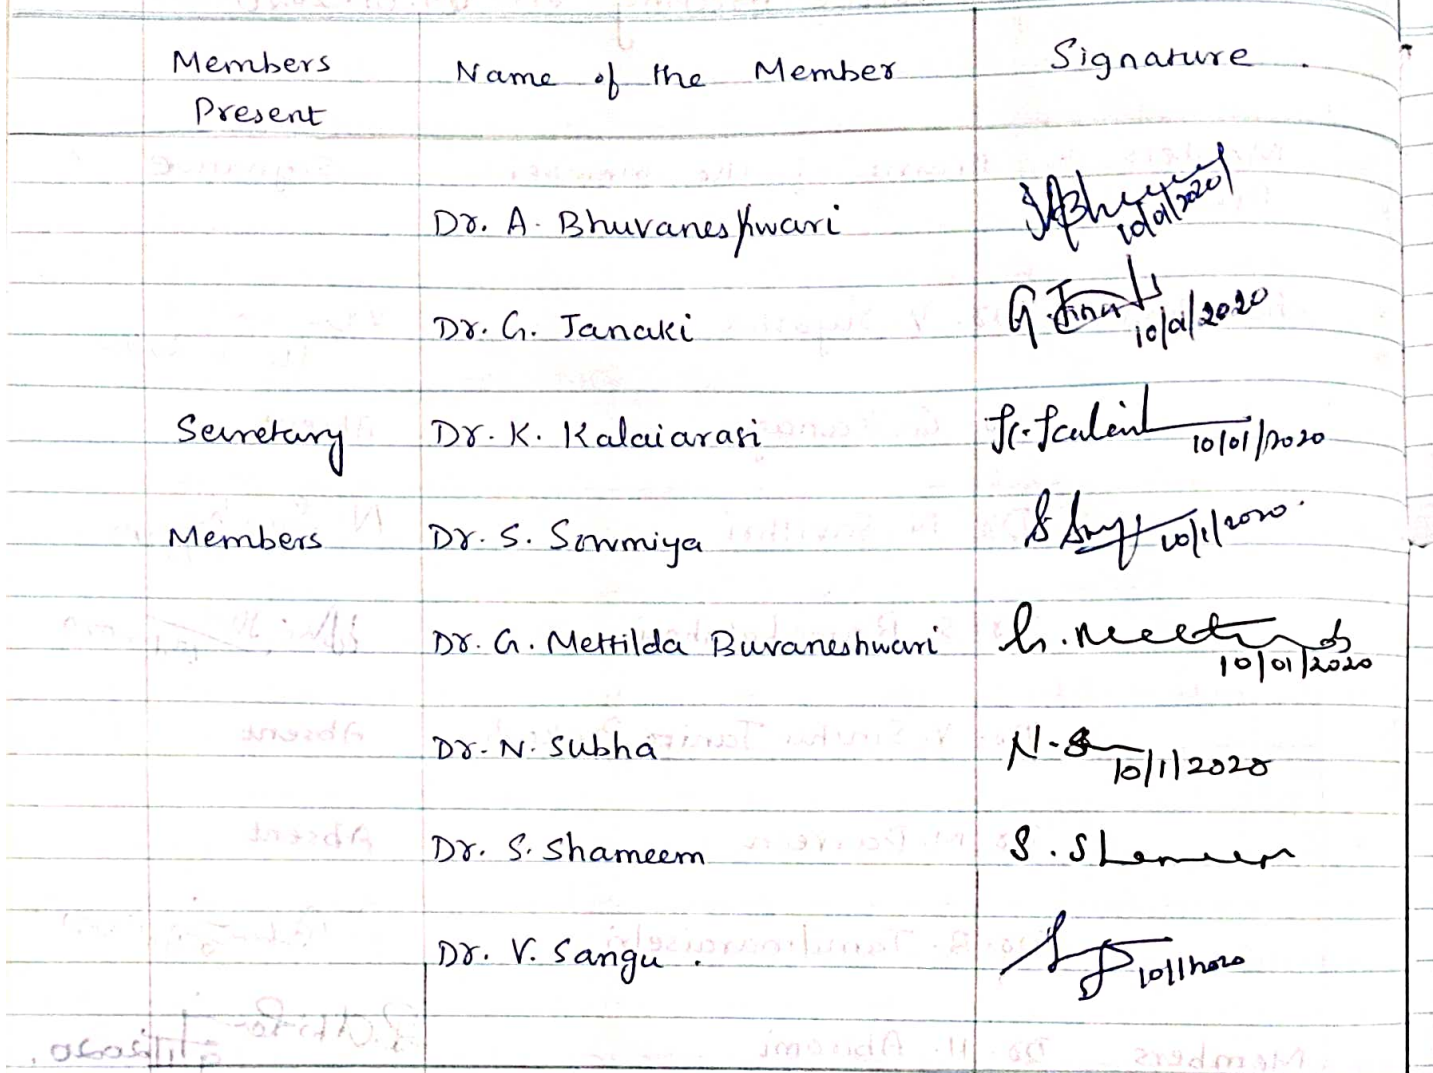 Members Present
Name of the Member
Signature.
Dr. A. Bhuvaneshwari 10/01/2020
Dr. G. Janaki G. Jana 10/01/2020
Secretary Dr. K. Kalaiarasi 10/01/2020
Members Dr. S. Sowmiya 10/1/2020.
Dr. G. Mettilda Buvaneshwari 10/01/2020
Dr. N. Subha N. S 10/1/2020
Dr. S. Shameem S. Shameem
Dr. V. Sangu. 10/1/2020